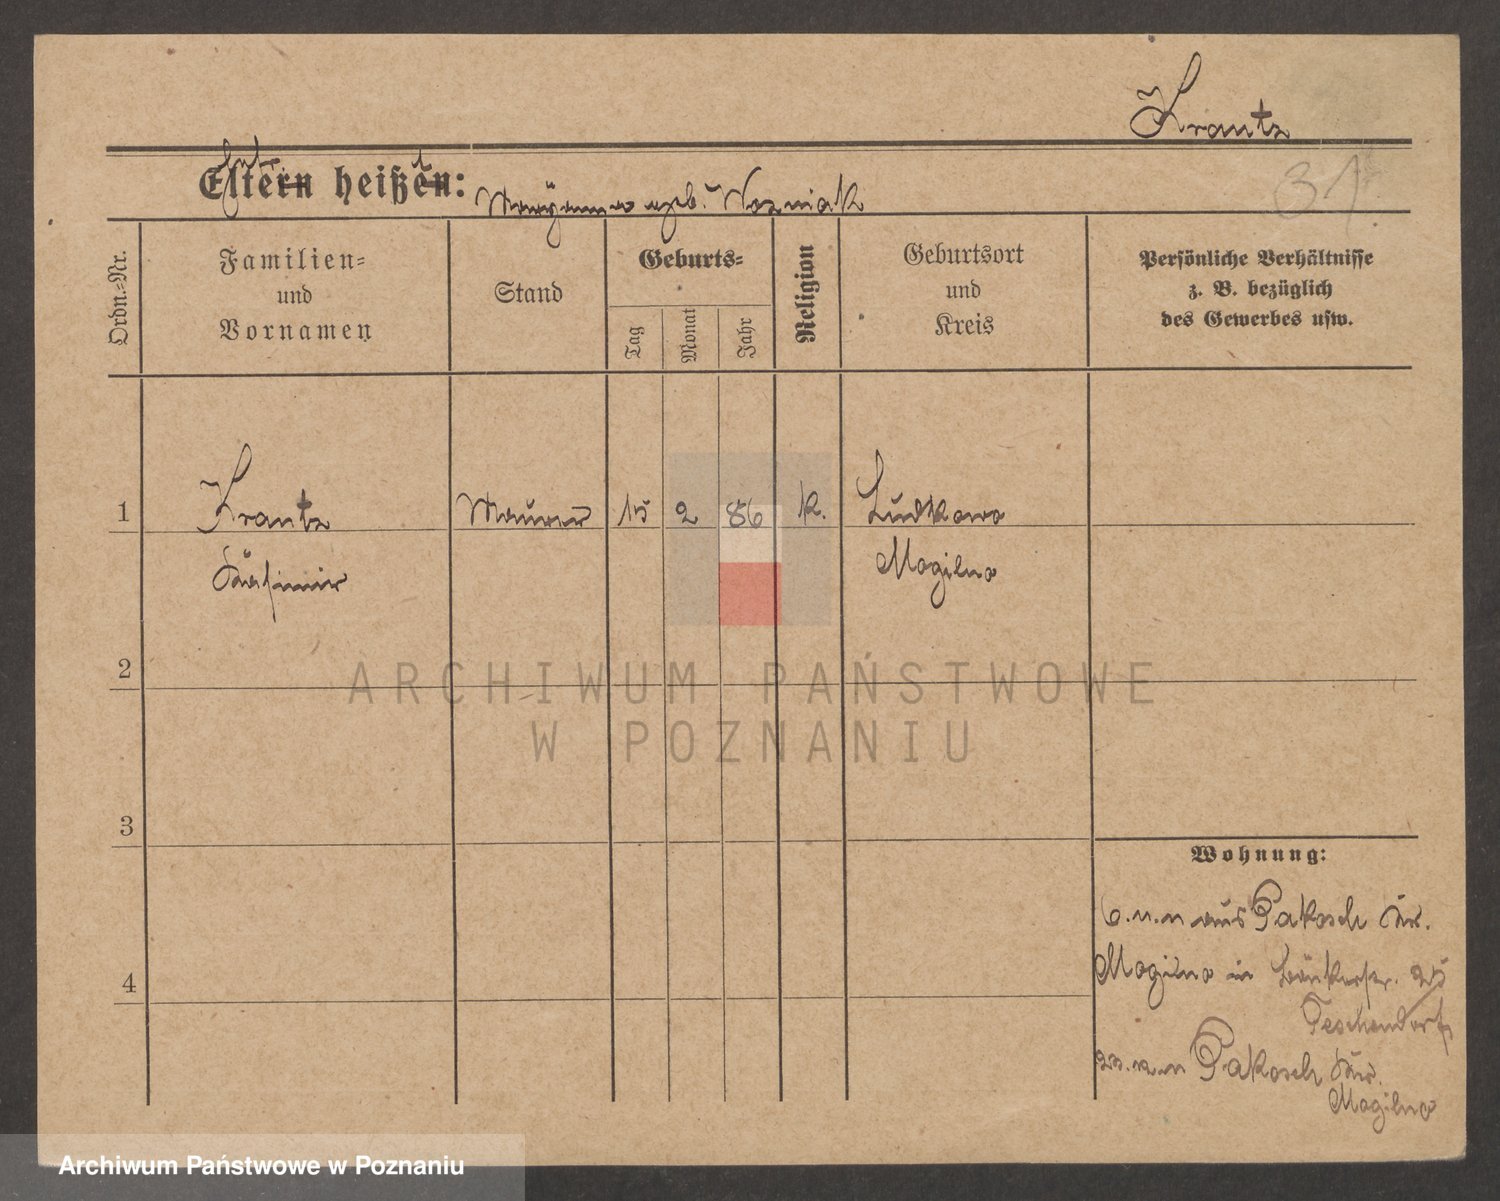 Krantz
Eltern heißen: Maryanna geb. Wozniak
31
Ordn.-Nr.
Familien-
und
Vornamen
Stand
Geburts-
Tag
Monat
Jahr
Religion
Geburtsort
und
Kreis
Persönliche Verhältnisse
z. B. bezüglich
des Gewerbes usw.
1 Krantz Maurer 15 2 86 K. Ludkowo
Kasimir Mogilno
2
3
4
Wohnung:
aus Pakosch Kr.
Mogilno in 25
Teschendorf
Pakosch Kr.
Mogilno
ARCHIWUM PAŃSTWOWE
W POZNANIU
Archiwum Państwowe w Poznaniu